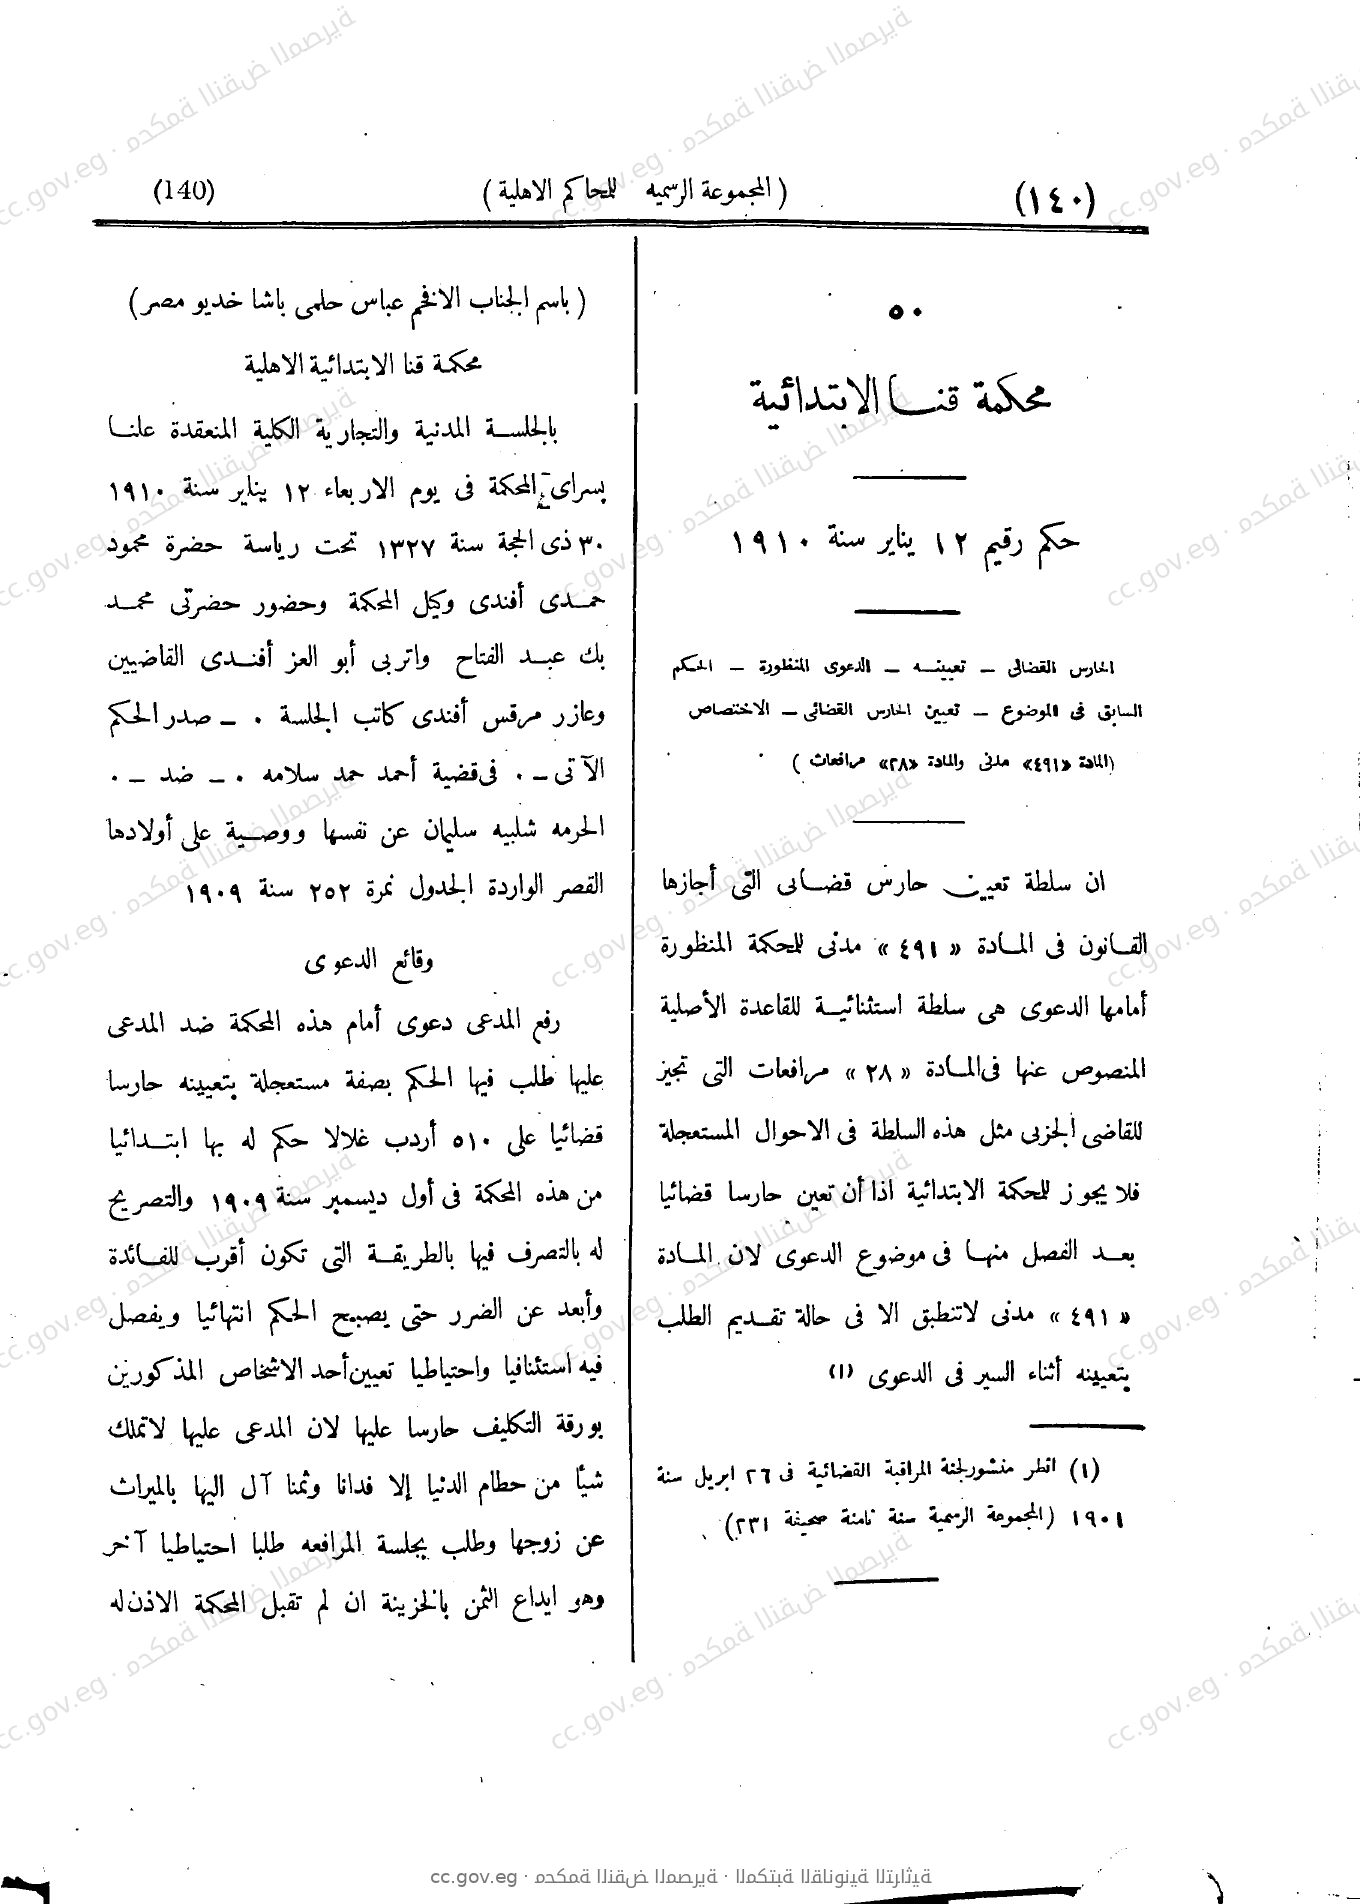 (١٤٠) ( المجموعة الرسميه للمحاكم الاهلية ) (140)
٥٠
محكمة قنا الابتدائية
حكم رقيم ١٢ يناير سنة ١٩١٠
الحارس القضائى – تعيينه – الدعوى المنظورة – الحكم
السابق فى الموضوع – تعيين الحارس القضائى – الاختصاص
(المادة «٤٩١» مدنى والمادة «٢٨» مرافعات )
ان سلطة تعيين حارس قضائى التى أجازها
القانون فى المادة « ٤٩١ » مدنى للمحكمة المنظورة
أمامها الدعوى هى سلطة استثنائية للقاعدة الأصلية
المنصوص عنها فى المادة « ٢٨ » مرافعات التى تجيز
للقاضى الجزئى مثل هذه السلطة فى الاحوال المستعجلة
فلا يجوز للمحكمة الابتدائية اذا أن تعين حارسا قضائيا
بعد الفصل منها فى موضوع الدعوى لان المادة
« ٤٩١ » مدنى لاتنطبق الا فى حالة تقديم الطلب
بتعيينه أثناء السير فى الدعوى (١)
(١) انظر منشور لجنة المراقبة القضائية فى ٢٦ ابريل سنة
١٩٠١ (المجموعة الرسمية سنة ثامنة صحيفة ٢٣١)
( باسم الجناب الافخم عباس حلمى باشا خديو مصر )
محكمة قنا الابتدائية الاهلية
بالجلسة المدنية والتجارية الكلية المنعقدة علنا
بسراى المحكمة فى يوم الاربعاء ١٢ يناير سنة ١٩١٠
٣٠ ذى الحجة سنة ١٣٢٧ تحت رياسة حضرة محمود
حمدى أفندى وكيل المحكمة وحضور حضرتى محمد
بك عبد الفتاح واتربى أبو العز أفندى القاضيين
وعازر مرقس أفندى كاتب الجلسة ٠ – صدر الحكم
الآتى – ٠ فى قضية أحمد حمد سلامه ٠ – ضد – ٠
الحرمه شلبيه سليمان عن نفسها ووصية على أولادها
القصر الواردة الجدول نمرة ٢٥٢ سنة ١٩٠٩
وقائع الدعوى
رفع المدعى دعوى أمام هذه المحكمة ضد المدعى
عليها طلب فيها الحكم بصفة مستعجلة بتعيينه حارسا
قضائيا على ٥١٠ أردب غلالا حكم له بها ابتدائيا
من هذه المحكمة فى أول ديسمبر سنة ١٩٠٩ والتصريح
له بالتصرف فيها بالطريقة التى تكون أقرب للفائدة
وأبعد عن الضرر حتى يصبح الحكم انتهائيا ويفصل
فيه استئنافيا واحتياطيا تعيين أحد الاشخاص المذكورين
بورقة التكليف حارسا عليها لان المدعى عليها لاتملك
شيأ من حطام الدنيا إلا فدانا وثمنا آل اليها بالميراث
عن زوجها وطلب بجلسة المرافعه طلبا احتياطيا آخر
وهو ايداع الثمن بالخزينة ان لم تقبل المحكمة الاذن له
cc.gov.eg · محكمة النقض المصرية · المكتبة القانونية التراثية